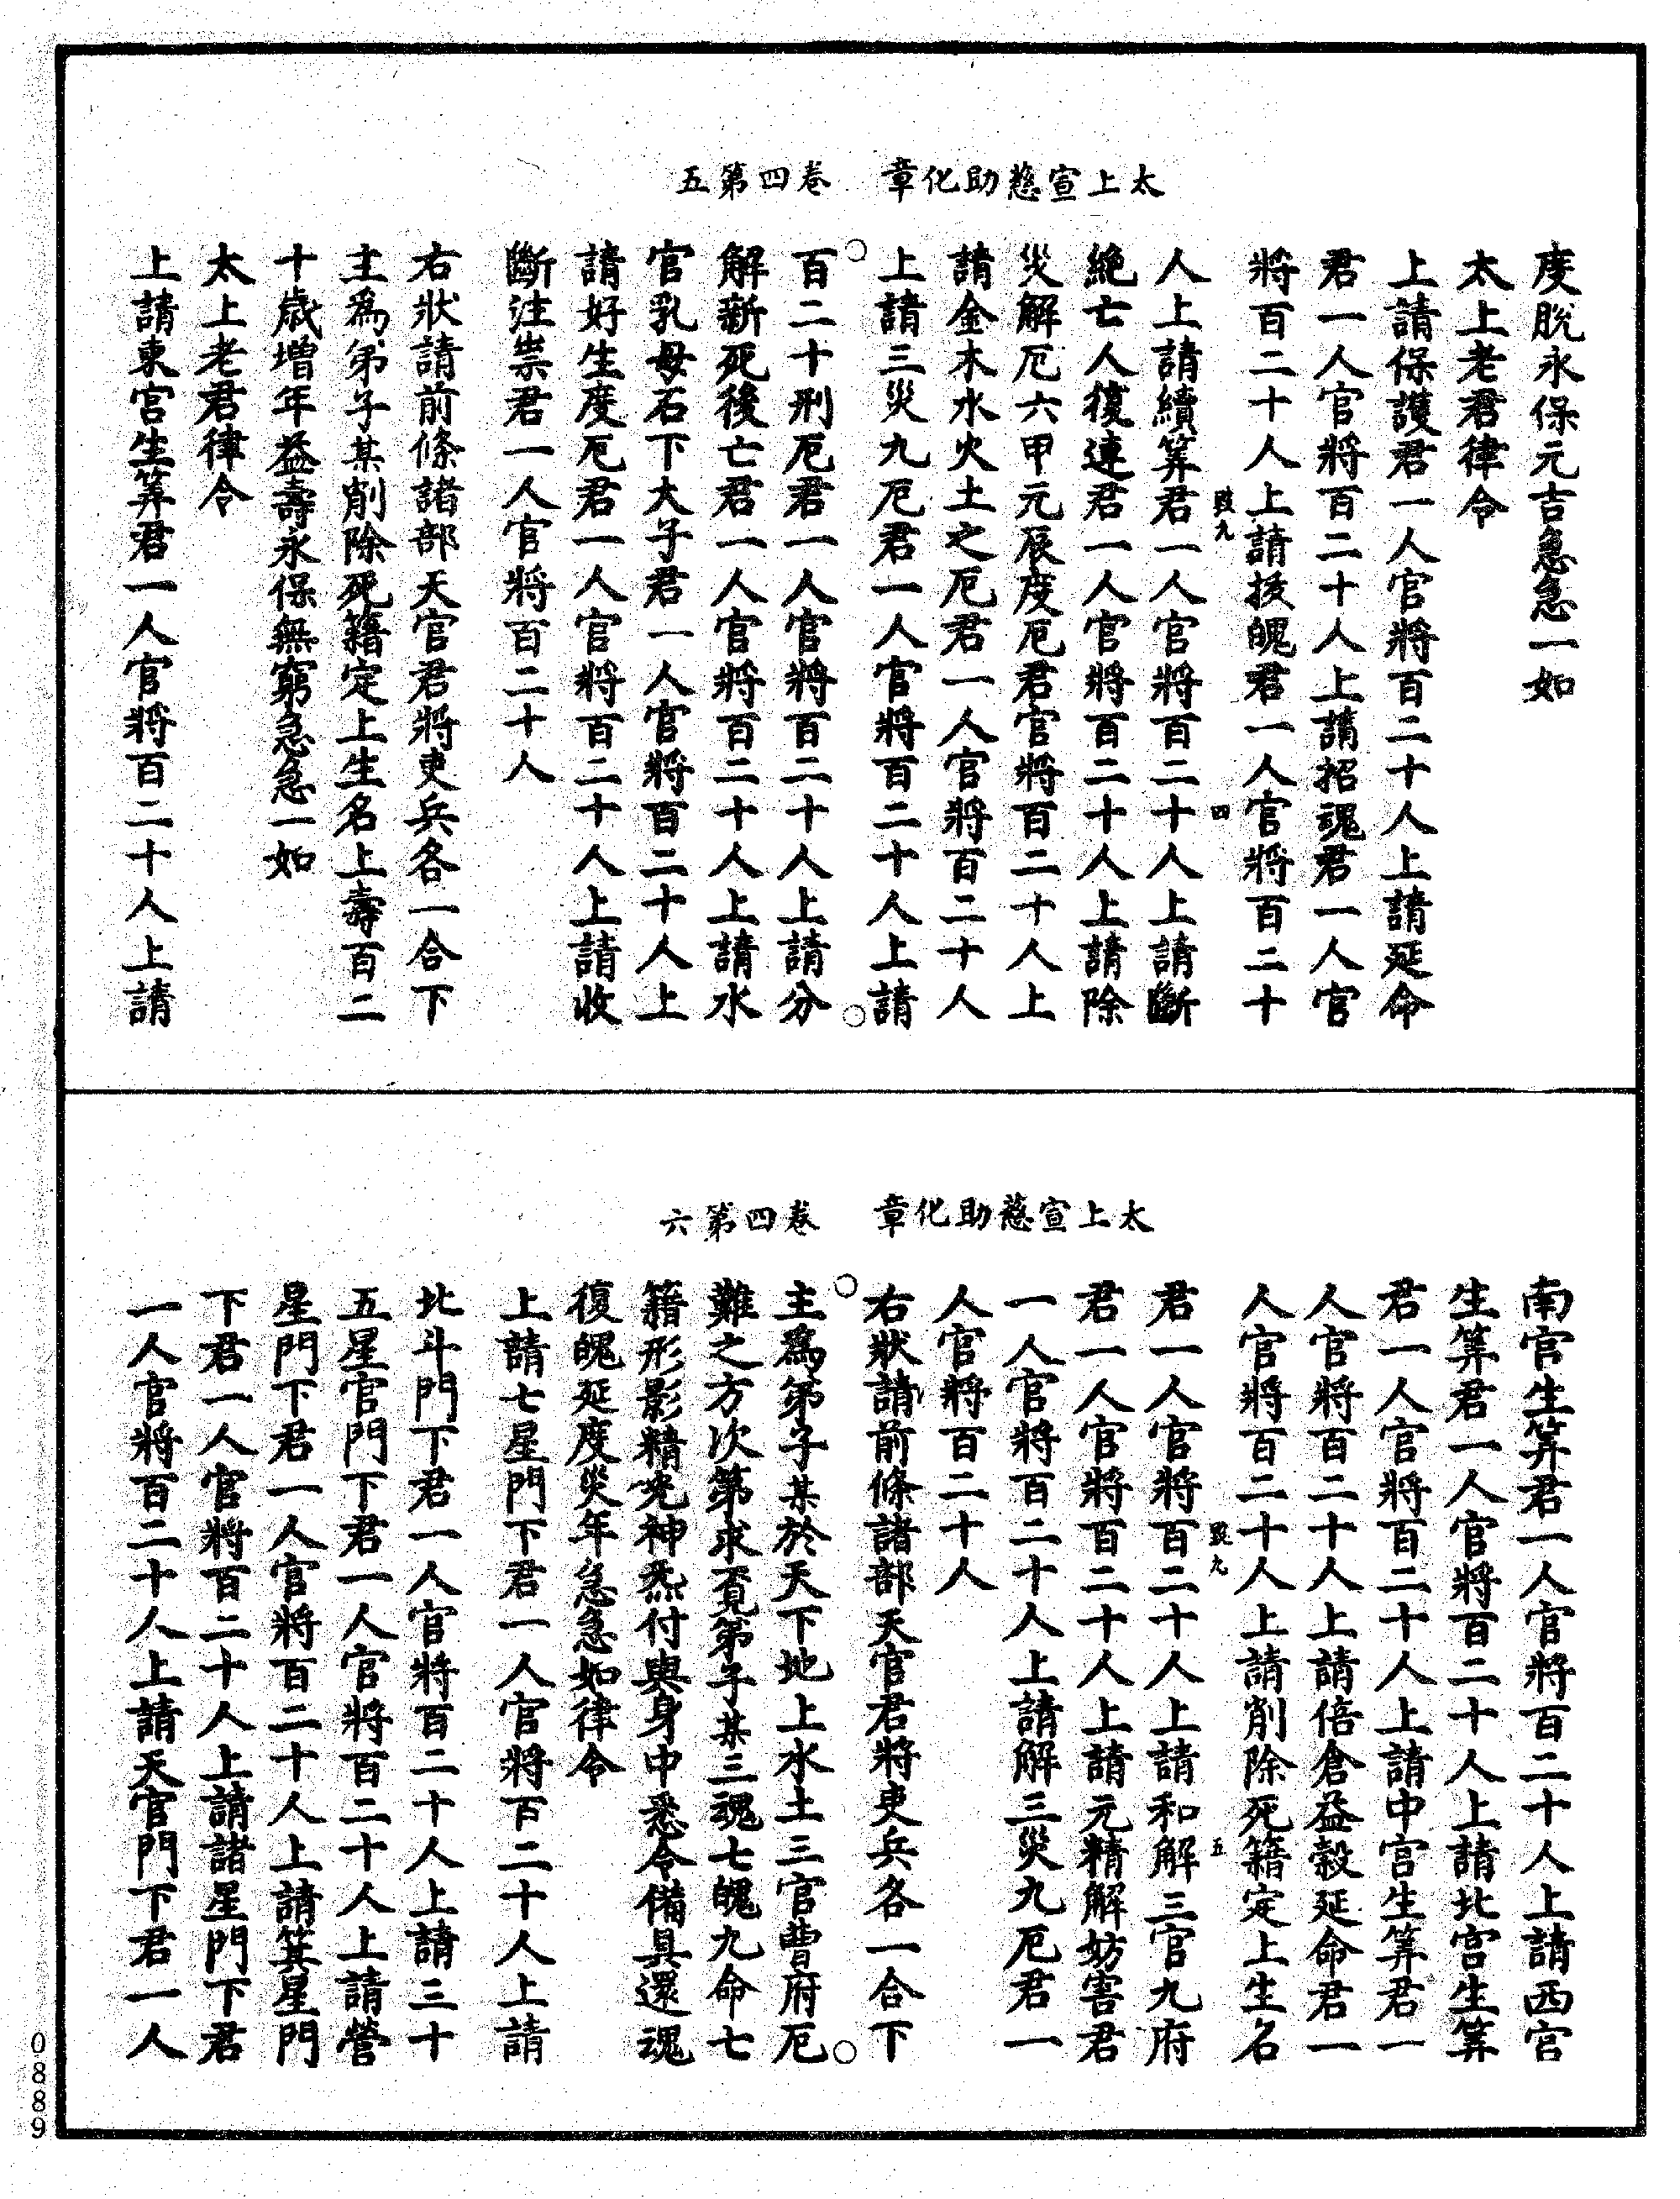 太上宣慈助化章　卷四第五
度脫永保元吉急急一如
太上老君律令
上請保護君一人官將百二十人上請延命
君一人官將百二十人上請招魂君一人官
將百二十人上請拔魄君一人官將百二十
人上請續筭君一人官將百二十人上請斷
絕亡人復連君一人官將百二十人上請除
災解厄六甲元辰度厄君官將百二十人上
請金木水火土之厄君一人官將百二十人
上請三災九厄君一人官將百二十人上請
百二十刑厄君一人官將百二十人上請分
解新死後亡君一人官將百二十人上請水
官乳母石下大子君一人官將百二十人上
請好生度厄君一人官將百二十人上請收
斷注祟君一人官將百二十人
右狀請前條諸部天官君將吏兵各一合下
主爲弟子某削除死籍定上生名上壽百二
十歲增年益壽永保無窮急急一如
太上老君律令
上請東宮生筭君一人官將百二十人上請
太上宣慈助化章　卷四第六
南宮生筭君一人官將百二十人上請西宮
生筭君一人官將百二十人上請北宮生筭
君一人官將百二十人上請中宮生筭君一
人官將百二十人上請倍倉益穀延命君一
人官將百二十人上請削除死籍定上生名
君一人官將百二十人上請和解三官九府
君一人官將百二十人上請元精解妨害君
一人官將百二十人上請解三災九厄君一
人官將百二十人
右狀請前條諸部天官君將吏兵各一合下
主爲弟子某於天下地上水土三官曹府厄
難之方次第求覓弟子某三魂七魄九命七
籍形影精光神炁付與身中悉令備具還魂
復魄延度災年急急如律令
上請七星門下君一人官將百二十人上請
北斗門下君一人官將百二十人上請三十
五星官門下君一人官將百二十人上請營
星門下君一人官將百二十人上請箕星門
下君一人官將百二十人上請諸星門下君
一人官將百二十人上請天官門下君一人
0889